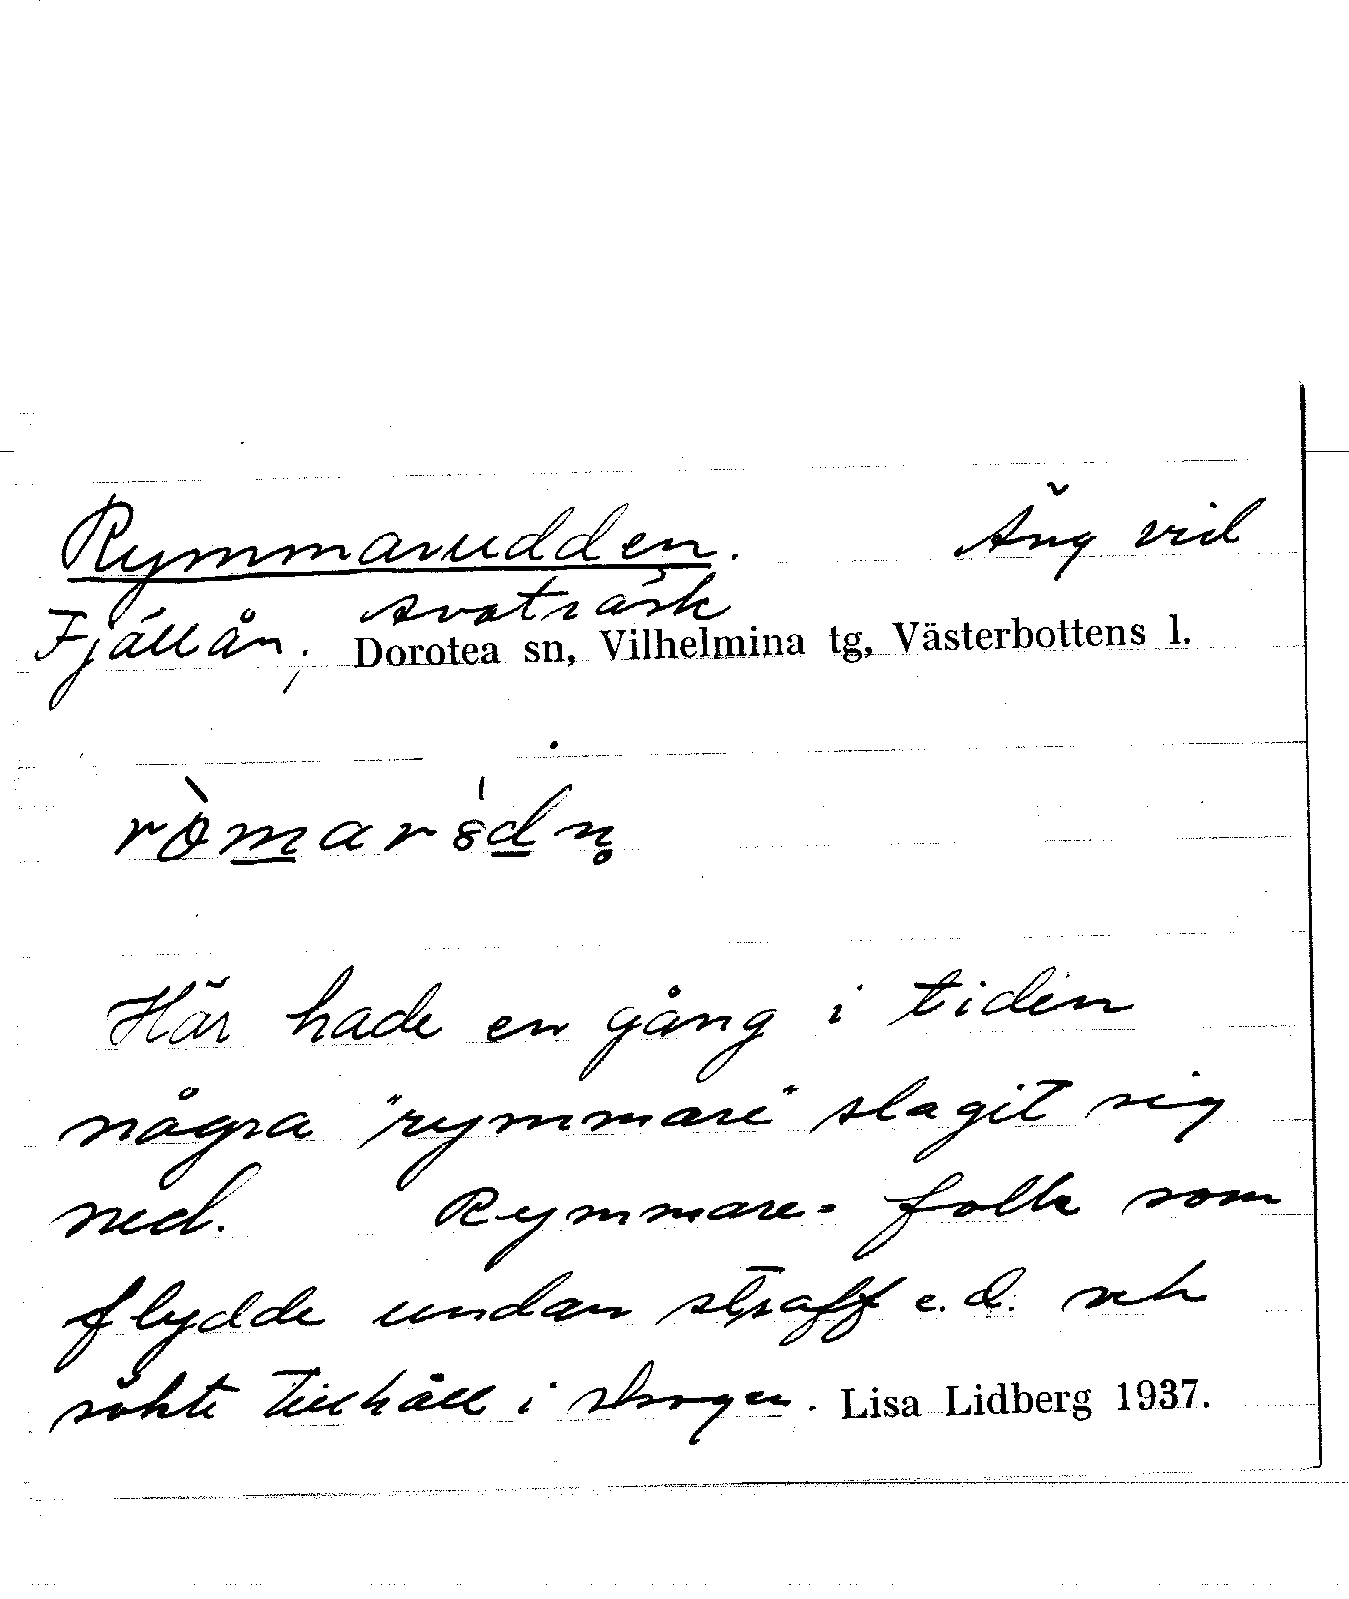 Rymmarudden. Äng vid
Avaträsk
Fjällån, Dorotea sn, Vilhelmina tg, Västerbottens l.
Här hade en gång i tiden
några "rymmare" slagit sig
ned. Rymmare = folk som
flydde undan straff e.d. och
sökte tillhåll i skogen. Lisa Lidberg 1937.